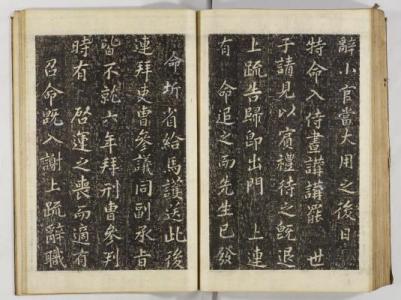 辭小官當大用之後日
特命入侍晝講講罷 世
子請見以賓禮待之旣退
上疏告歸卽出門 上連
有 命追之而先生已發
命圻省給馬護送此後
連拜吏曹參議同副承旨
皆不就六年拜刑曹參判
時有 啓運之喪而適有
召命旣入謝上疏辭職